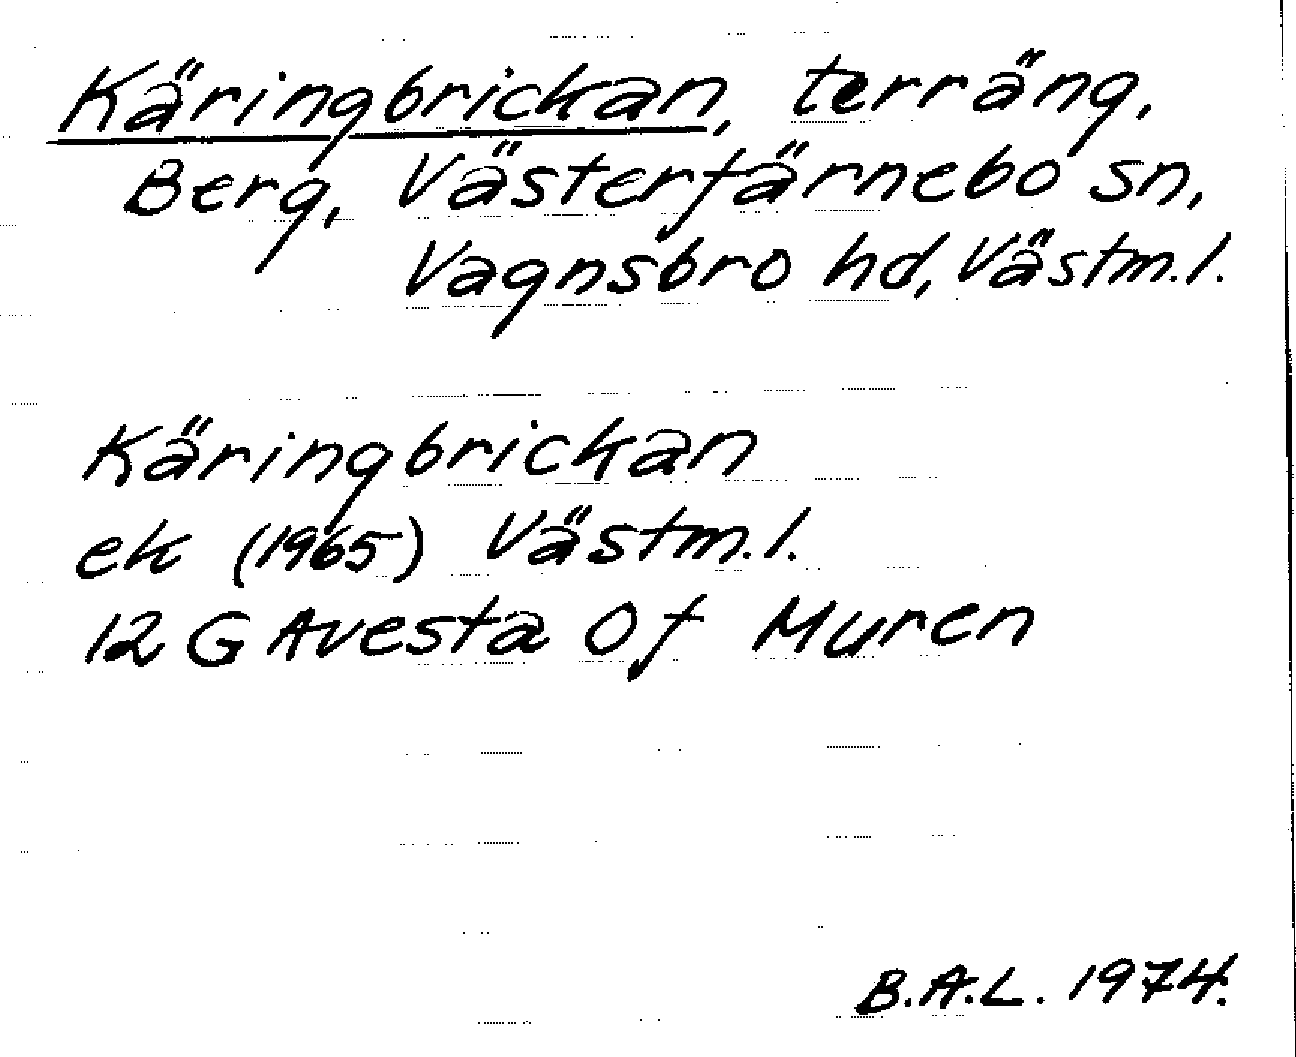 Käringbrickan, terräng,
Berg, Västerfärnebo sn,
Vagnsbro hd, Västm.l.
Käringbrickan
ek (1965) Västm.l.
12 G Avesta 0f Muren
B.A.L. 1974.